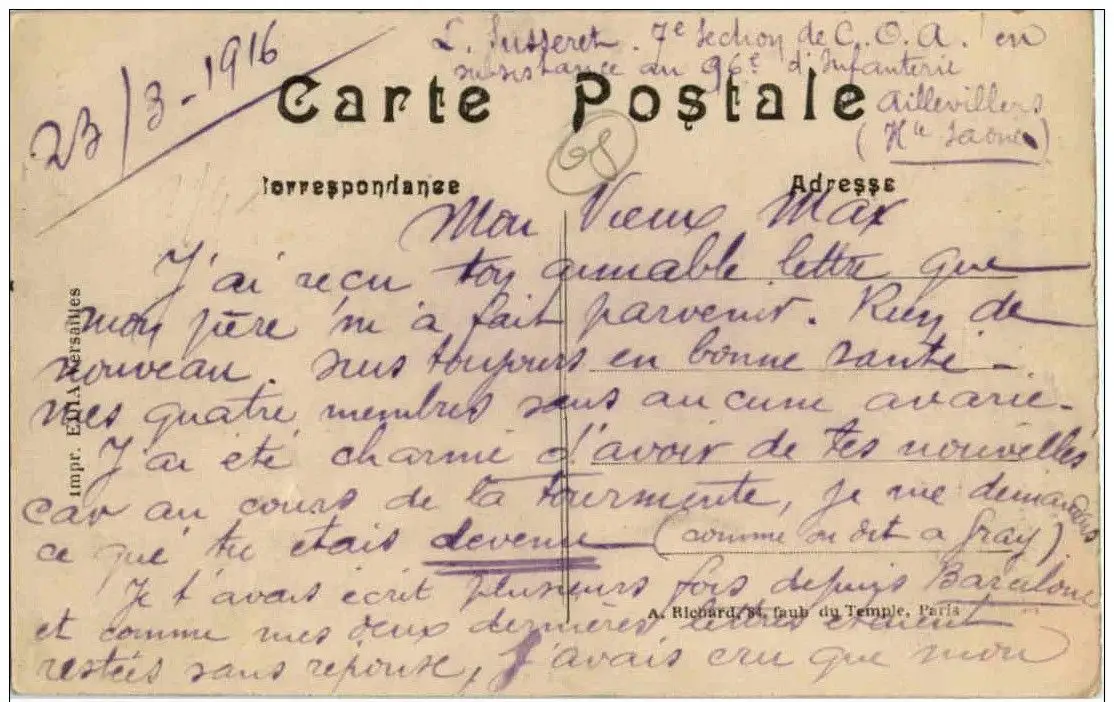 23/3-1916
L. Jusseret. 7e Section de C.O.A. en
subsistance au 96e d'Infanterie
Aillevillers
(Hte Saone)
Carte Postale
68
Correspondance
Adresse
Mon Vieux Max
J'ai reçu ton aimable lettre que
mon père m'a fait parvenir. Rien de
nouveau. suis toujours en bonne santé -
mes quatre membres sans aucune avarie -
J'ai été charmé d'avoir de tes nouvelles
car au cours de la tourmente, je me demandais
ce que tu étais devenu (comme on dit a Gray)
Je t'avais écrit plusieurs fois depuis Barcelone
et comme mes deux dernières lettres étaient
restées sans réponse, J'avais cru que mon
A. Richard, 84, faub du Temple, Paris
Impr. EDIA Versailles